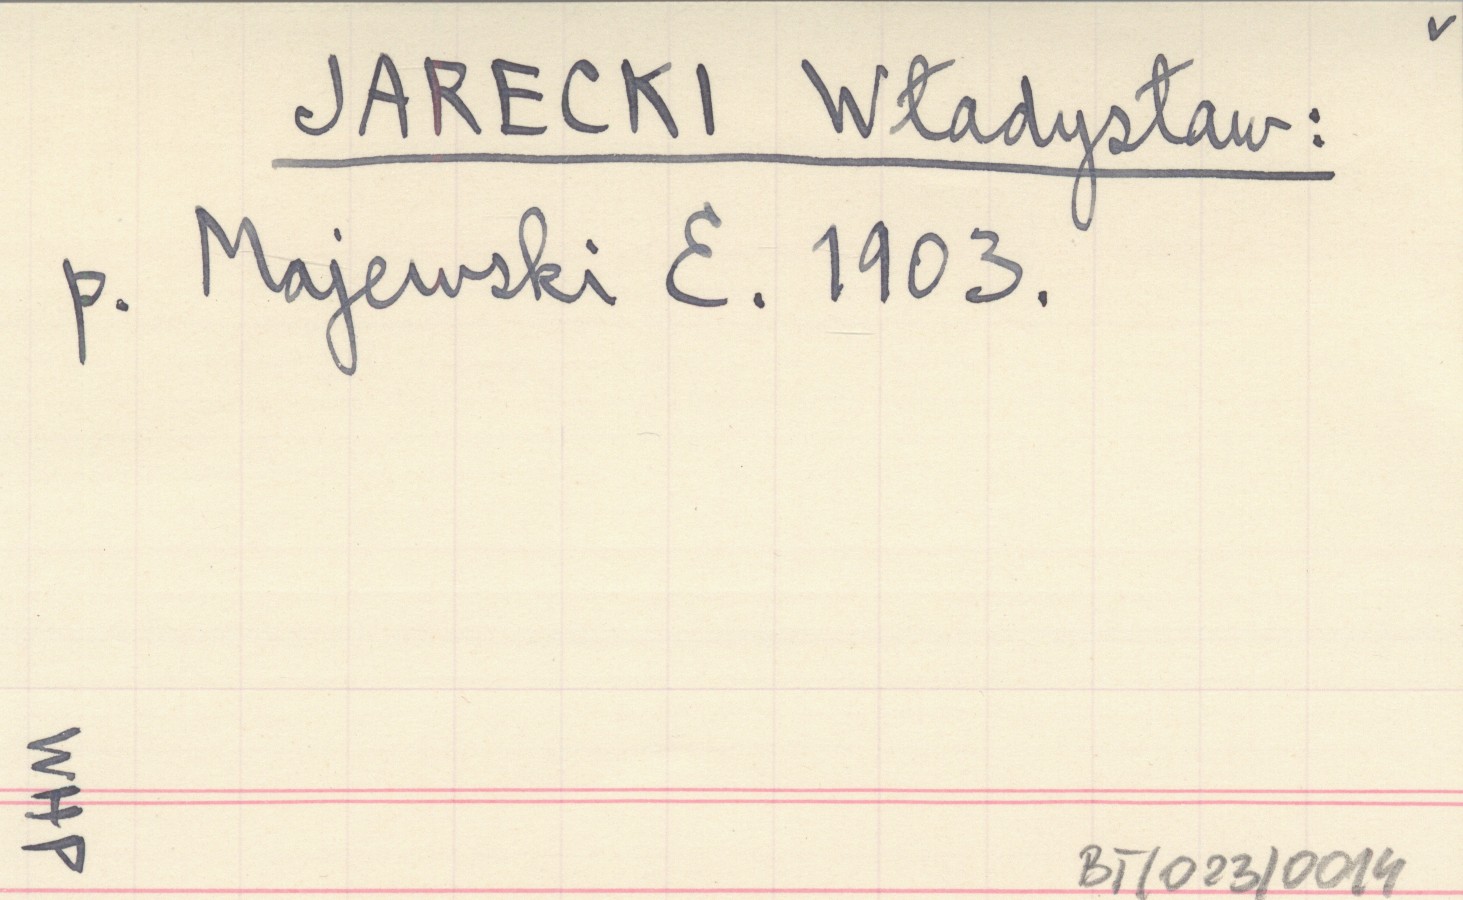 JARECKI Władysław:
p. Majewski E. 1903.
WHP
BT/023/0014